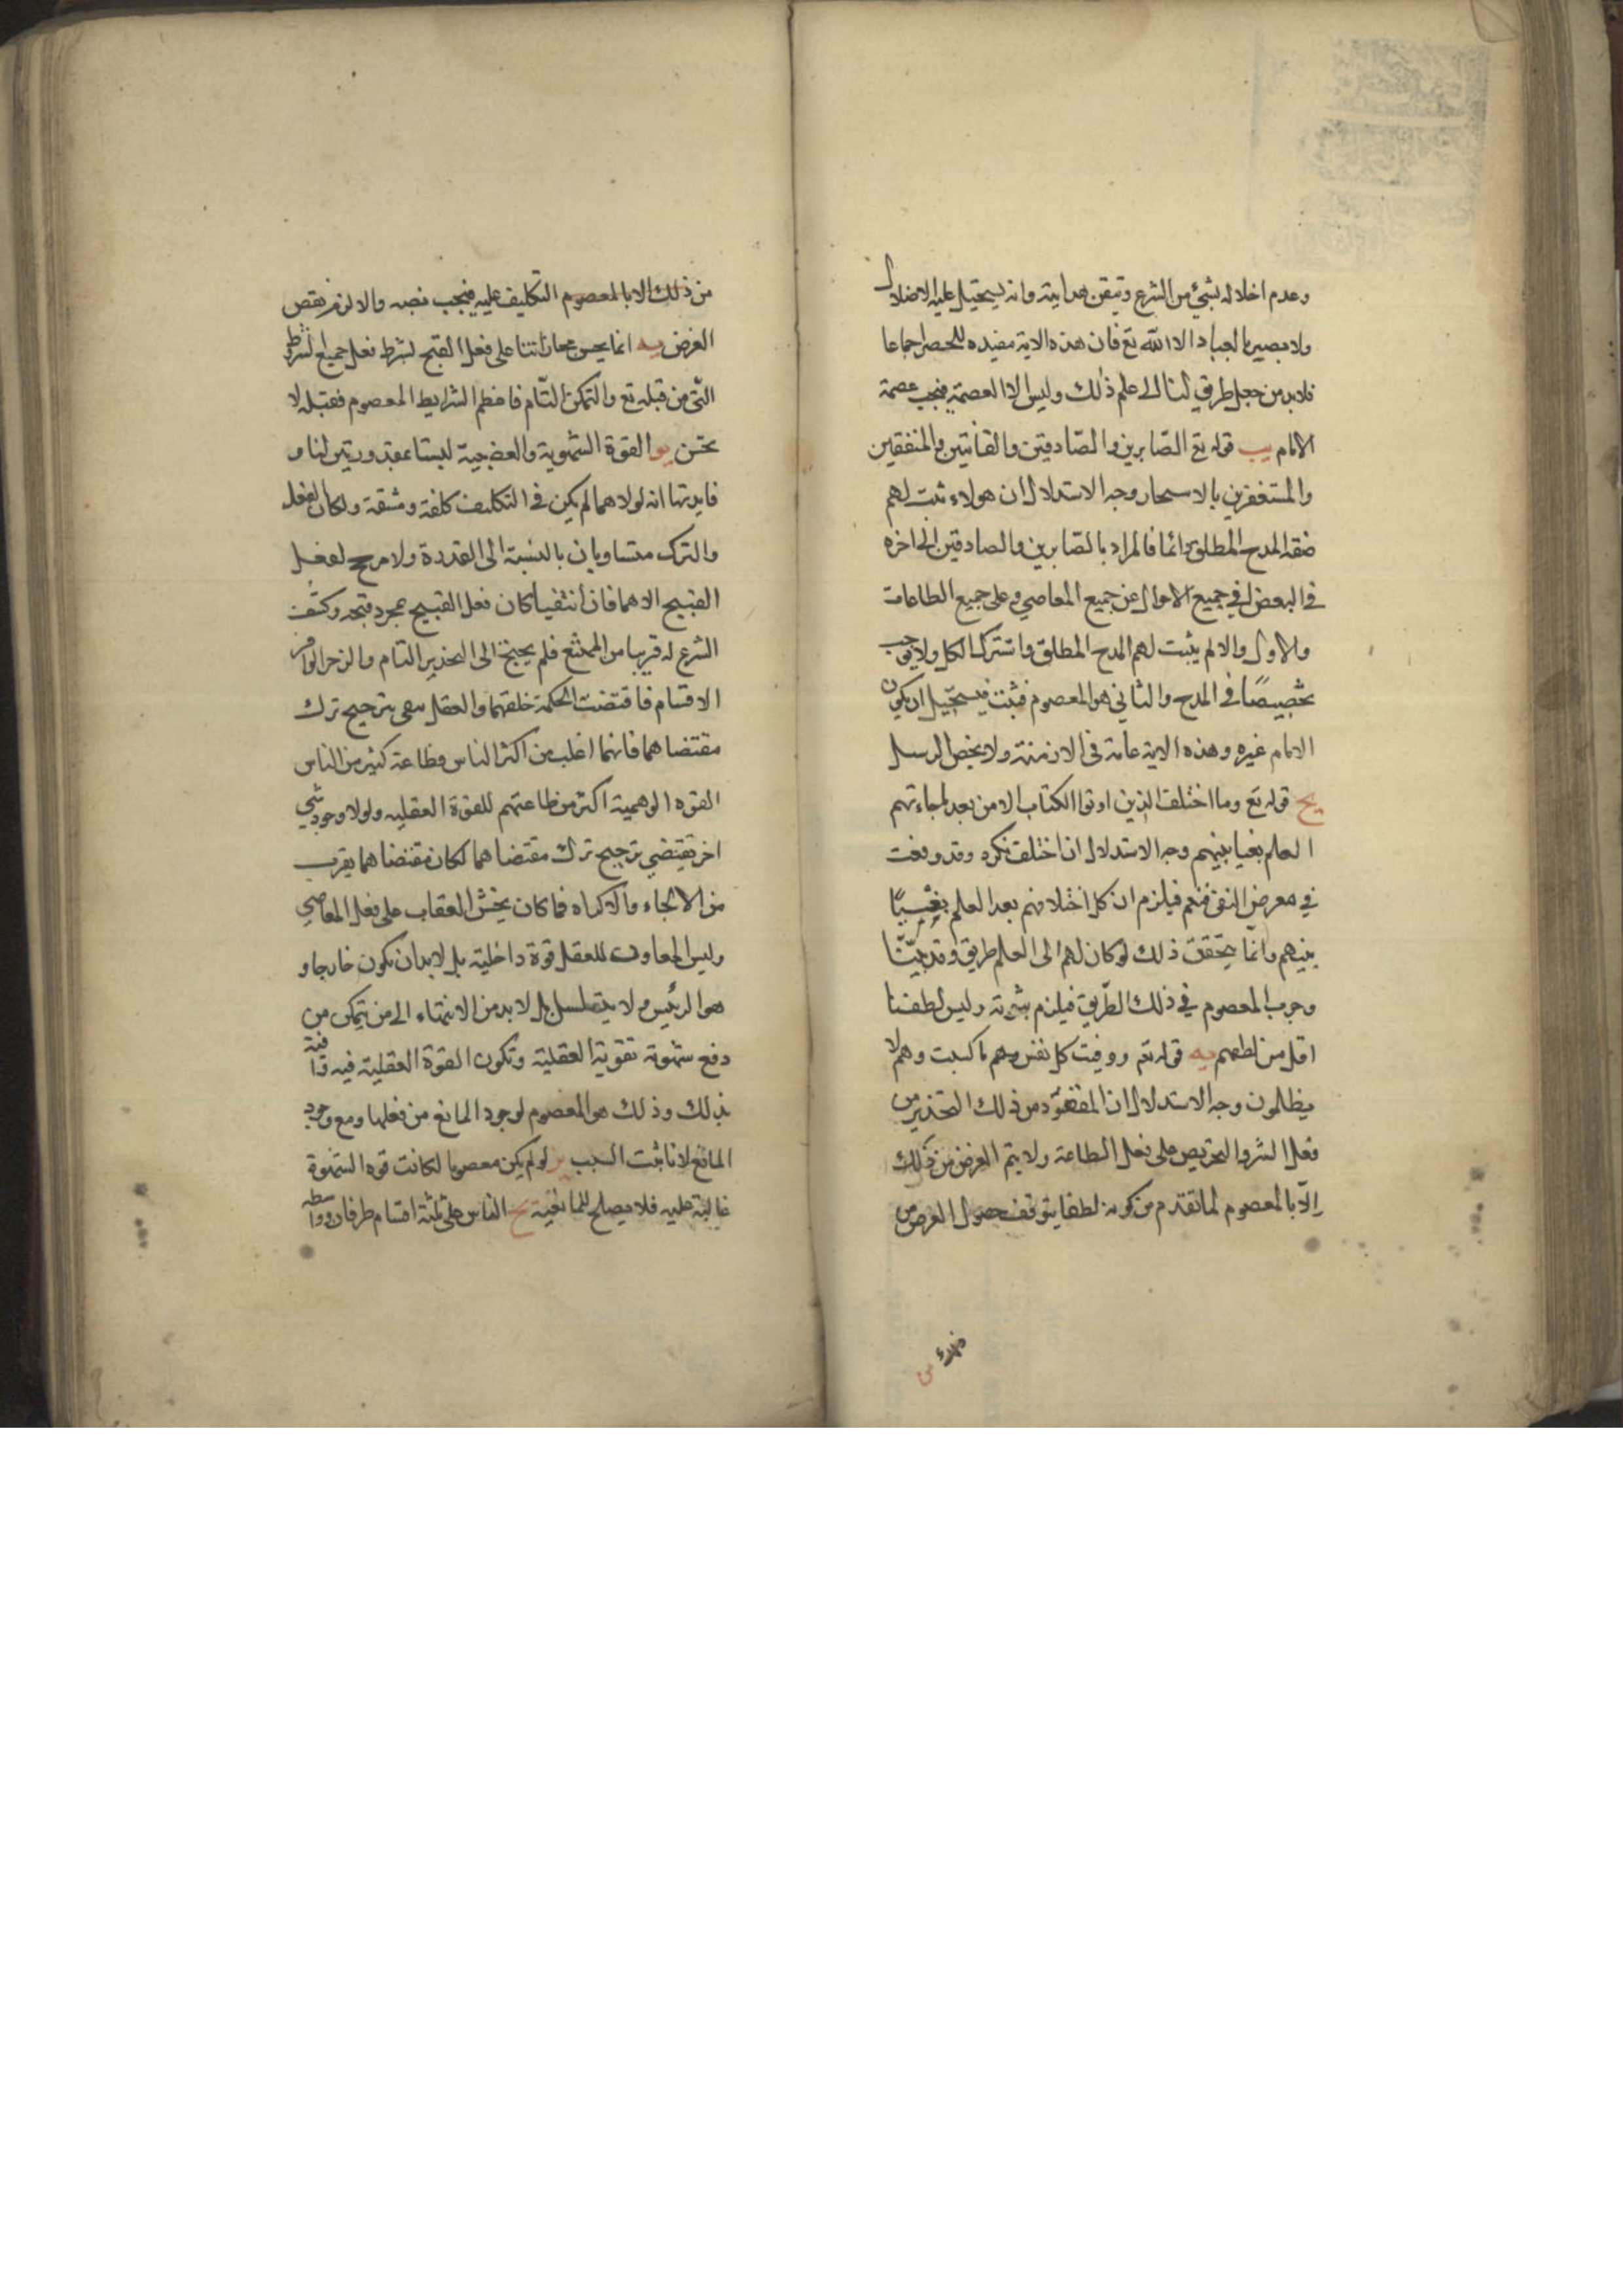 وعدم اخلاله بشئ من الشرع وتيقن هدايته وانه يستحيل عليه الاضلال
ولا بصير بالعباد الا الله تع فان هذه الاية مفيده للحصر اجماعا
فلابد من جعل طريق لنا الى علم ذلك وليس الا العصمة فيجب عصمة
الامام يب قوله تع الصّابرين والصّادقين والقانتين والمنفقين
والمستغفرين بالاسحار وجه الاستدلال ان هولاء ثبت لهم
صفة المدح المطلق دائما فالمراد بالصّابرين والصادقين الى اخره
في البعض او في جميع الاحوال عن جميع المعاصي وعلى جميع الطاعات
والاول والا لم يثبت لهم المدح المطلق واشترك الكل ولا يوجب
تخصيصًا في المدح والثاني هو المعصوم فثبت فيستحيل ان يكون
الامام غيره وهذه الاية عامة في الازمنة ولا يخص الرسل
يج قوله تع وما اختلف الذين اوتوا الكتاب الا من بعد ما جاءتهم
العلم بغيا بينهم وجه الاستدلال ان اختلف نكره وقد وقعت
في معرض النفى فتعم فيلزم ان كل اختلافهم بعد العلم بغيًا
بينهم وانّما يتحقق ذلك لو كان لهم الى العلم طريق وقد بيّنّا
وجوب المعصوم في ذلك الطّريق فيلزم ثبوته وليس لطفنا
اقل من لطفهم يد قوله تع ووفيت كل نفس وهم ما كسبت وهم لا
يظلمون وجه الاستدلال ان المقصود من ذلك التحذير من
فعل الشر والتحريص على فعل الطاعة ولا يتم الغرض من ذلك
الّا بالمعصوم لما تقدم من كونه لطفا يتوقف حصول الغرض من
من ذلك الا بالمعصوم التكليف عليه فيجب نصبه والا لزم نقص
الغرض يه انما يحسن مجازاتنا على فعل القبح لشرط فعل جميع الشرايط
التّى من قبله تع والتمكن التّام فاعظم الشرايط المعصوم فقبله لا
يحسن يو القوة الشهوية والغضبية ليستا مقدورتين لنا و
فايدتها انه لولا هما لم يكن في التكليف كلفة ومشقة ولكان الفعل
والترك متساويان بالنسبة الى القدرة ولا مرجح لفعل
القبيح الا هما فان انتفيا كان فعل القبيح بمجرد قبحه وكشف
الشرع له قريبا من الممتنع فلم يحتج الى التحذير التام والزجر الوافر
الاقسام فاقتضت الحكمة خلقهما والعقل يفى بترجيح ترك
مقتضاهما فانهما اغلب من اكثر الناس وطاعة كثير من الناس
القوه الوهمية اكثر من طاعتهم للقوة العقليه ولولا وجود شي
اخر يقتضي ترجيح ترك مقتضاهما لكان مقتضاهما يقرب
من الالجاء والاكراه فما كان يحسن العقاب على فعل المعاصي
وليس المعاون للعقل قوة داخلية بل لا بد ان يكون خارجا و
هو الرئيس ولا يتسلسل بل لا بد من الانتهاء الى من يتمكن من
دفع شهوته بقوته العقلية وتكون القوة العقلية فيه وافية
بذلك وذلك هو المعصوم لوجود المانع من فعلها ومع وجود
المانع لا تاثبت السبب يز لو لم يكن معصوما لكانت قوه الشهوة
غالبة عليه فلا يصلح للمانعية يح الناس على ثلثة اقسام طرفان وواسطه